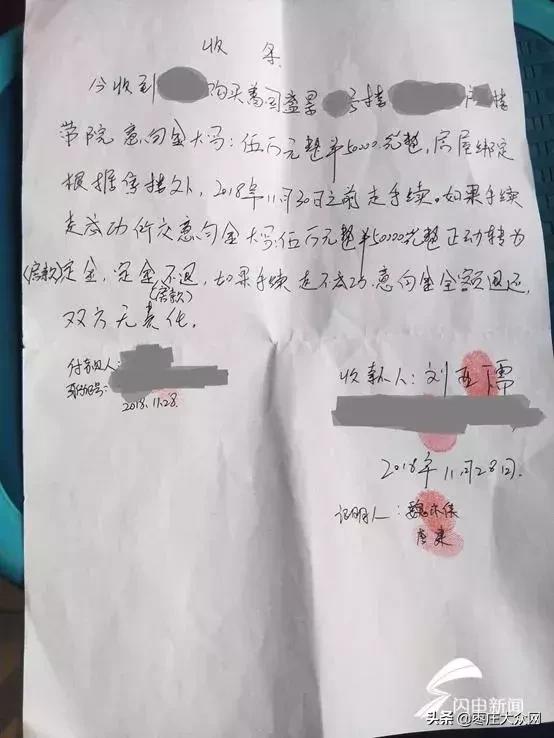 收条
今收到 购买 园盛景 号楼 楼
带院意向金大写:伍万元整¥50000元整,房屋绑定
根据售楼处,2018年11月30日之前走手续。如果手续
走成功所交意向金大写:伍万元整¥50000元整正动转为
(房款)定金,定金不退,如果手续走不成功,意向金全额退还,
(房款)
双方无责任。
付款人:
身份证号:
2018.11.28.
收款人:刘
2018年11月28日.
证明人:魏
唐建
闪电新闻
头条@枣庄大众网